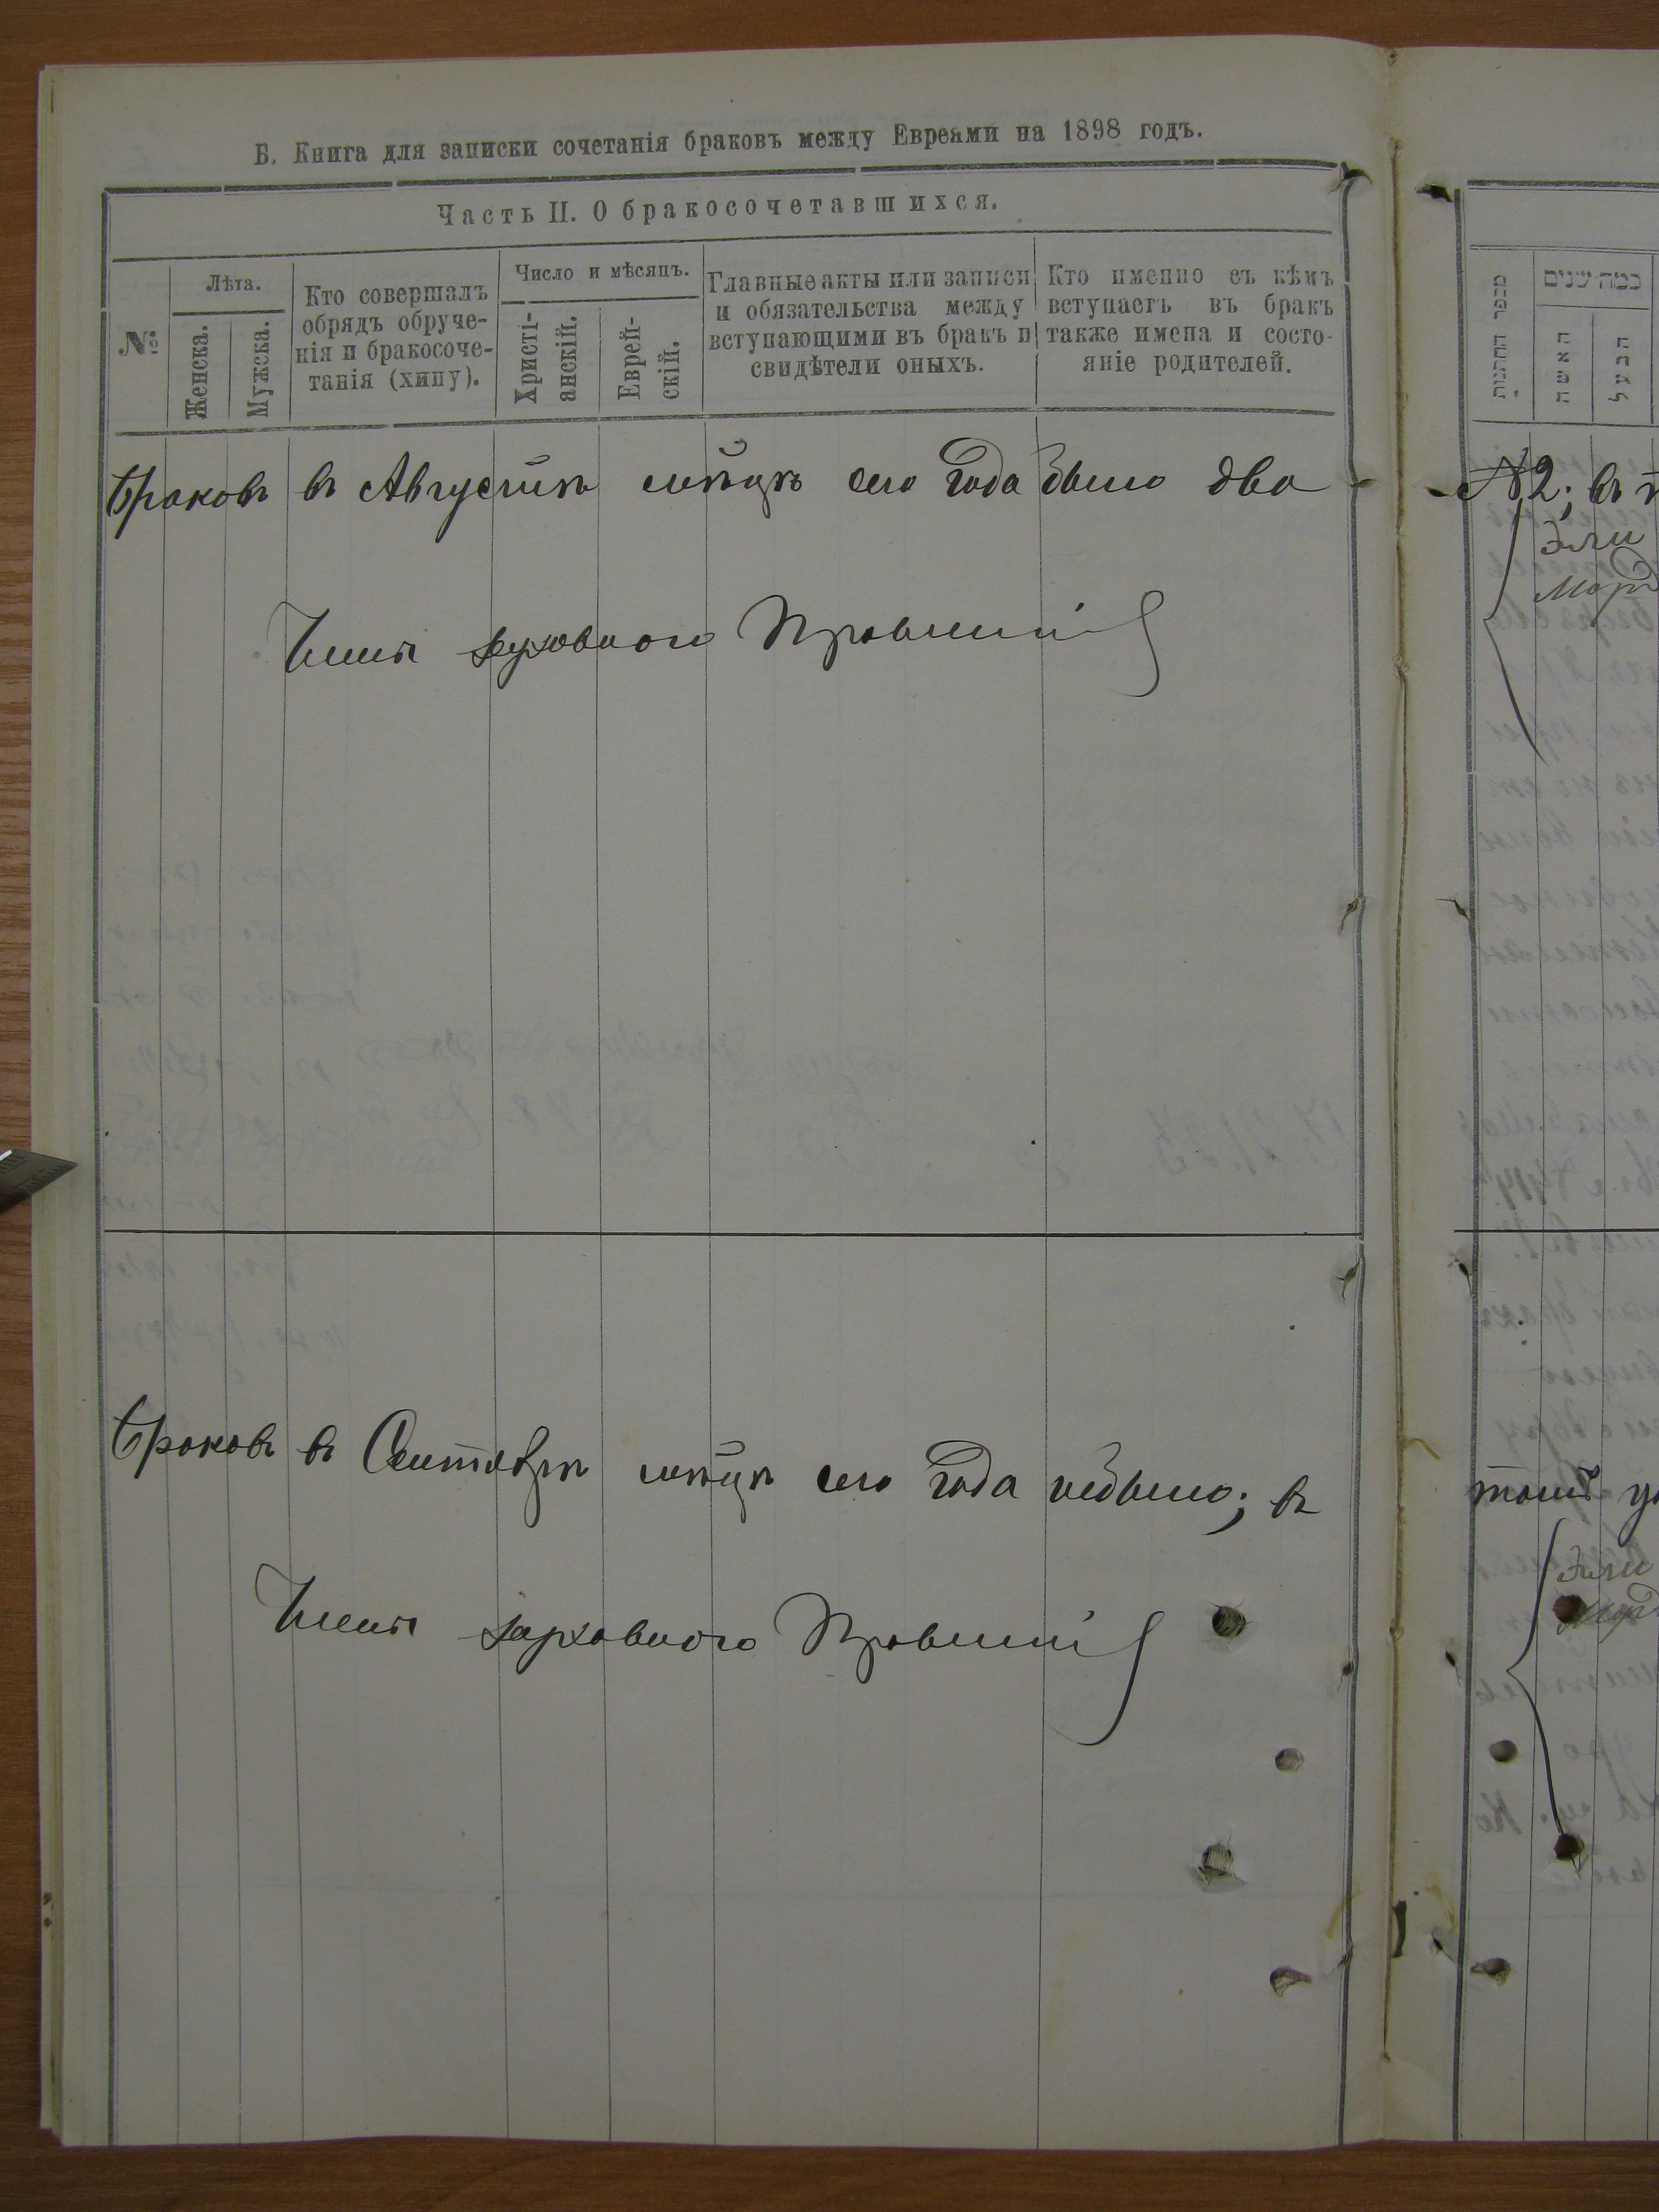 Б. Книга для записки сочетанія браковъ между Евреями на 1898 годъ.
Часть II. О бракосочетавшихся.
№
Лѣта.
Женска.
Мужска.
Кто совершалъ
обрядъ обруче-
нія и бракосоче-
танія (хипу).
Число и мѣсяцъ.
Христі-
анскій.
Еврей-
скій.
Главные акты или записи
и обязательства между
вступающими въ бракъ и
свидѣтели оныхъ.
Кто именно съ кѣмъ
вступаетъ въ бракъ
также имена и состо-
яніе родителей.
Браковъ въ Августѣ мѣцѣ сего года было два
Члены духовного Правленія
Браковъ въ Сентябрѣ мѣцѣ сего года небыло; въ
Члены духовного Правленія
מספר החתונות
כמה שנים
האשה
הבעל
№2; въ
томъ